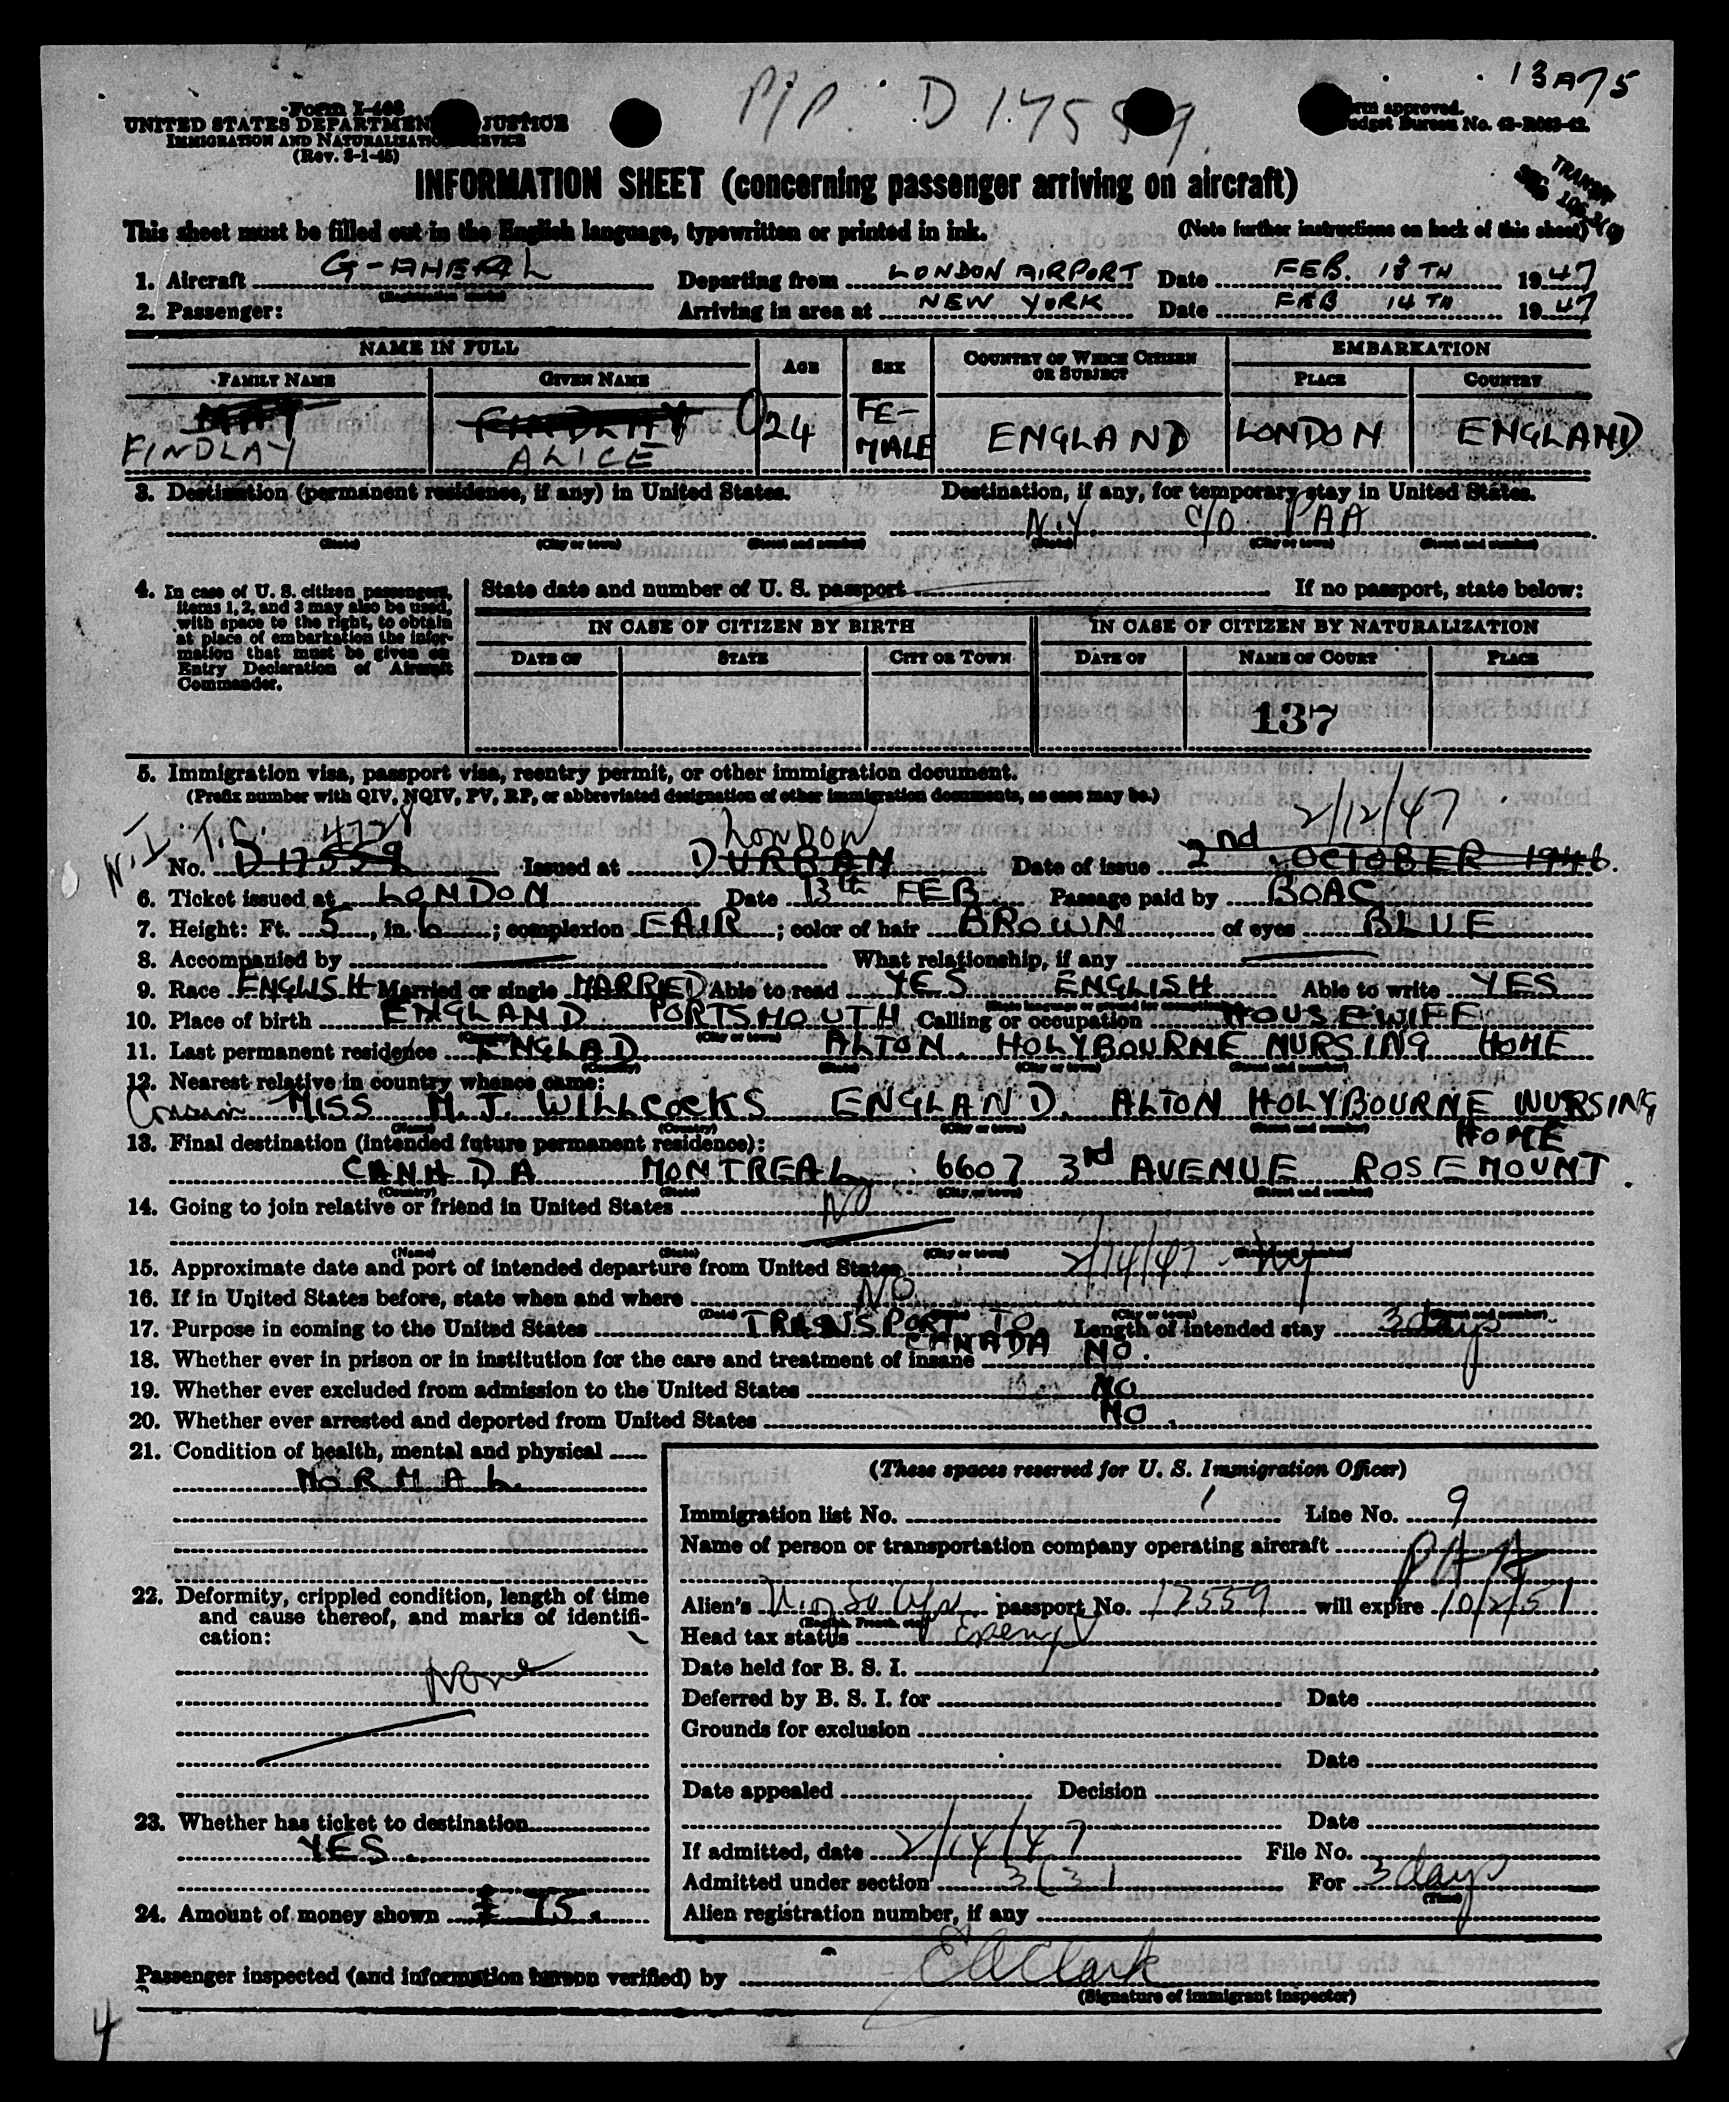 13 A 75
P/P. D 17559.
Form I-466
UNITED STATES DEPARTMENT JUSTICE
IMMIGRATION AND NATURALIZATION SERVICE
(Rev. 3-1-45)
Form approved.
Budget Bureau No.
TRANSIT
INFORMATION SHEET (concerning passenger arriving on aircraft)
This sheet must be filled out in the English language, typewritten or printed in ink. (Note further instructions on back of this sheet)
1. Aircraft Departing from LONDON AIRPORT Date FEB. 13TH 1947
2. Passenger: Arriving in area at NEW YORK Date FEB 14TH 1947
NAME IN FULL AGE SEX COUNTRY OF WHICH CITIZEN OR SUBJECT EMBARKATION
FAMILY NAME GIVEN NAME PLACE COUNTRY
FINDLAY
FINDLAY ALICE 24 FE-MALE ENGLAND LONDON ENGLAND
3. Destination (permanent residence, if any) in United States. Destination, if any, for temporary stay in United States.
N.Y. C/O PAA
(State) (City or town) (Street and number) (State) (City or town) (Street and number)
4. In case of U. S. citizen passengers, items 1, 2, and 3 may also be used, with space to the right, to obtain at place of embarkation the information that must be given on Entry Declaration of Aircraft Commander.
State date and number of U. S. passport If no passport, state below:
IN CASE OF CITIZEN BY BIRTH IN CASE OF CITIZEN BY NATURALIZATION
DATE OF STATE CITY OR TOWN DATE OF NAME OF COURT PLACE
137
5. Immigration visa, passport visa, reentry permit, or other immigration document.
(Prefix number with QIV, NQIV, PV, RP, or abbreviated designation of other immigration documents, as case may be.)
N.I T.C. 4728 LONDON 2/12/47
No. D 17559 Issued at DURBAN Date of issue 2nd OCTOBER 1946.
6. Ticket issued at LONDON Date 13th FEB Passage paid by BOAC
7. Height: Ft. 5, in. 6; complexion FAIR; color of hair BROWN of eyes BLUE
8. Accompanied by What relationship, if any
9. Race ENGLISH Married or single MARRIED Able to read YES ENGLISH Able to write YES
10. Place of birth ENGLAND PORTSMOUTH Calling or occupation HOUSEWIFE
(Country) (City or town)
11. Last permanent residence ENGLAD ALTON. HOLYBOURNE NURSING HOME
(Country) (State) (City or town) (Street and number)
12. Nearest relative in country whence came:
Cousin MISS M. J. WILLCOCKS ENGLAND. ALTON HOLYBOURNE NURSING HOME
(Name) (Country) (City or town) (Street and number)
13. Final destination (intended future permanent residence):
CANADA MONTREAL 6607 3rd AVENUE ROSEMOUNT
(Country) (State) (City or town) (Street and number)
14. Going to join relative or friend in United States NO
(Name) (State) (City or town) (Street and number)
15. Approximate date and port of intended departure from United States 2/14/47 Ny
16. If in United States before, state when and where NO
(Date) (City or town) (Street and number)
17. Purpose in coming to the United States TRANSPORT TO CANADA Length of intended stay 3 days
18. Whether ever in prison or in institution for the care and treatment of insane NO.
19. Whether ever excluded from admission to the United States NO
20. Whether ever arrested and deported from United States NO.
21. Condition of health, mental and physical
NORMAL.
(These spaces reserved for U. S. Immigration Officer)
Immigration list No. 1 Line No. 9
Name of person or transportation company operating aircraft
PAA
22. Deformity, crippled condition, length of time and cause thereof, and marks of identification:
None
Alien's passport No. 17559 will expire 10/2/51
(English, French, etc.)
Head tax status Exempt
Date held for B. S. I.
Deferred by B. S. I. for Date
Grounds for exclusion
Date
Date appealed Decision
Date
23. Whether has ticket to destination
YES.
If admitted, date 2/14/47 File No.
Admitted under section 3(3) For 3 days
(Time)
24. Amount of money shown 75.
Alien registration number, if any
Passenger inspected (and information hereon verified) by E A Clark
(Signature of immigrant inspector)
4